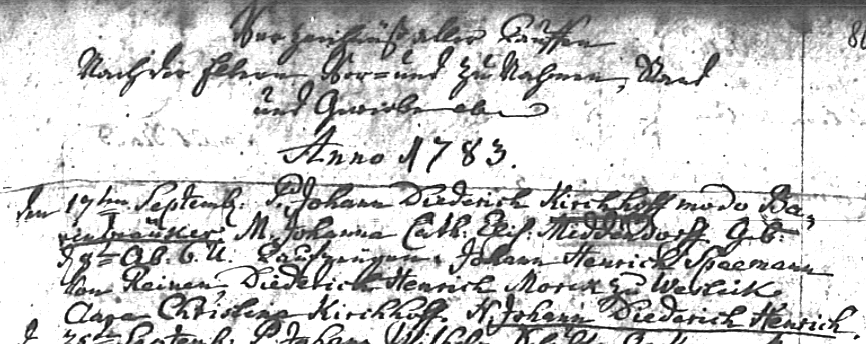 Verzeichniß aller Tauffen
Nach der Eltern Vor= und Zu Nahmen, Stand
und Gewerbe
Anno 1783.
den 17ten Septemb: P. Johann Diederich Kirchhoff modo Ba,
M. Johanna Cath: Elis: Middendorff Geb:
d 8te Ab. 6 U. Taufzeugen. Johann Henrich Spaemann
Von Reinen, Diederich Henrich Morex zu Werleik
Clara Christina Kirchhoff. N. Johann Diederich Henrich.
Septemb: P. Johann Wilhelm